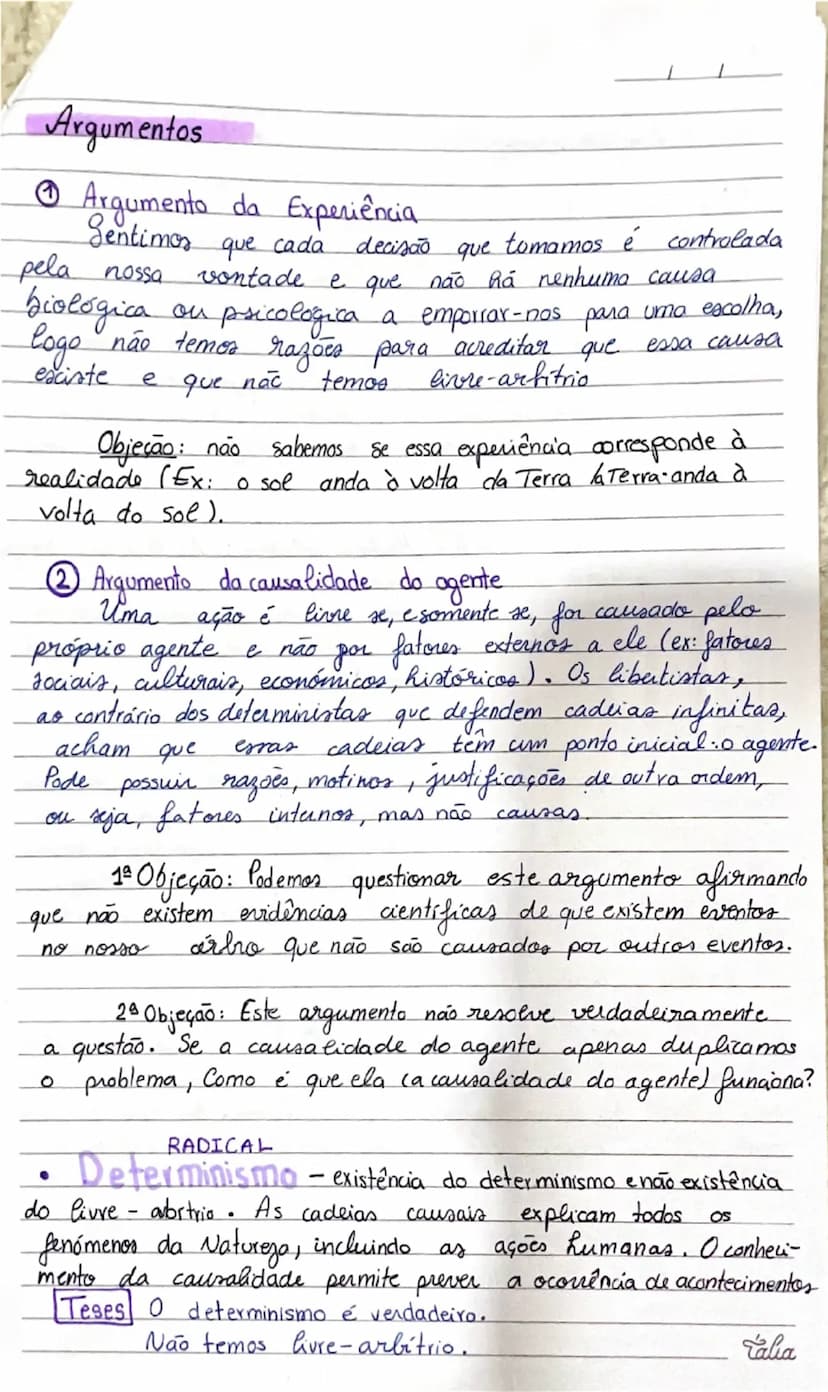 Argumentos
① Argumento da Experiência
Sentimos que cada decisão que tomamos é controlada
pela nossa vontade e que não há nenhuma causa
biológica ou psicológica a emporrar-nos para uma escolha,
logo não temos razões para acreditar que essa causa
existe e que não temos livre-arbítrio
Objeção: não sabemos se essa experiência corresponde à
realidade (Ex: o sol anda à volta da Terra / a Terra anda à
volta do sol).
② Argumento da causalidade do agente
Uma ação é livre se, e somente se, for causado pelo
próprio agente e não por fatores externos a ele (ex: fatores
sociais, culturais, económicos, históricos). Os libertistas,
ao contrário dos deterministas que defendem cadeias infinitas,
acham que essas cadeias têm um ponto inicial: o agente.
Pode possuir razões, motivos, justificações de outra ordem,
ou seja, fatores internos, mas não causas.
1ª Objeção: Podemos questionar este argumento afirmando
que não existem evidências científicas de que existem eventos
no nosso que não são causados por outros eventos.
2ª Objeção: Este argumento não resolve verdadeiramente
a questão. Se a causalidade do agente apenas duplicamos
o problema, Como é que ela (a causalidade do agente) funciona?
RADICAL
• Determinismo – existência do determinismo e não existência
do livre-abrtrio. As cadeias causais explicam todos os
fenómenos da Natureza, incluindo as ações humanas. O conheci-
mento da causalidade permite prever a ocorrência de acontecimentos
Teses O determinismo é verdadeiro.
Não temos livre-arbítrio.
Tália